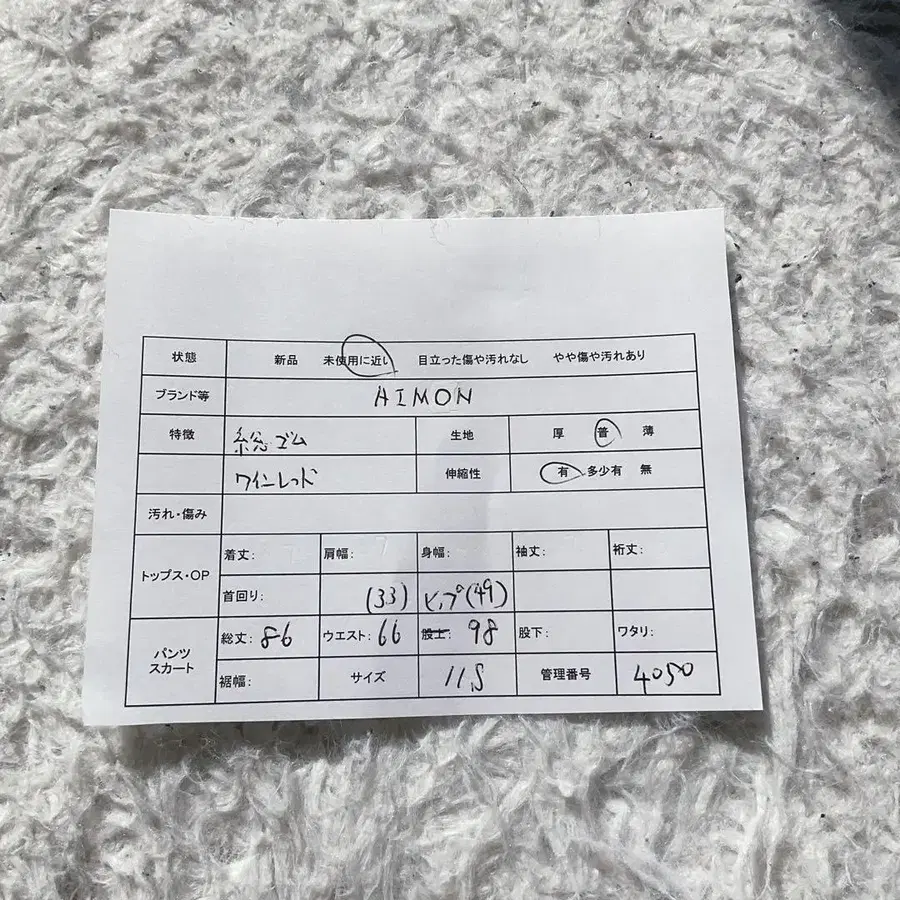 状態 新品 未使用に近い 目立った傷や汚れなし やや傷や汚れあり
ブランド等 AIMON
特徴 総ゴム 生地 厚 普 薄
ワインレッド 伸縮性 有 多少有 無
汚れ・傷み
トップス・OP 着丈: 肩幅: 身幅: 袖丈: 裄丈:
首回り: (33) ヒップ(49)
パンツ スカート 総丈: 86 ウエスト: 66 股上: 98 股下: ワタリ:
裾幅: サイズ 11S 管理番号 4050